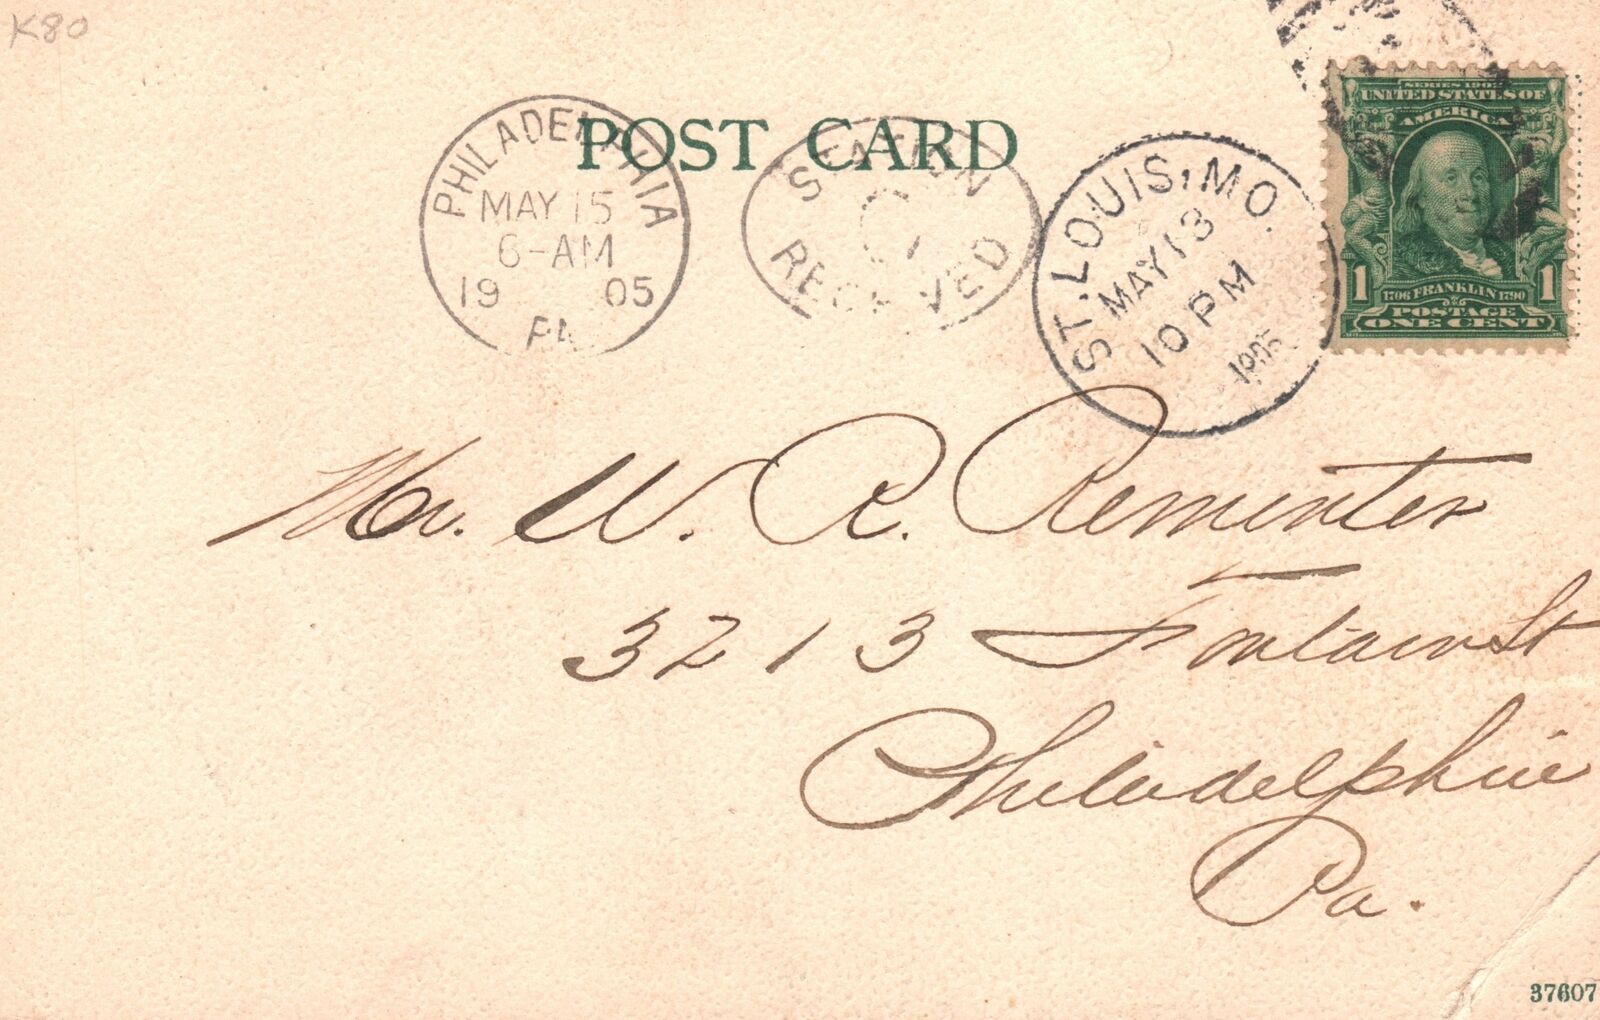 K80
POST CARD
PHILADELPHIA
MAY 15
6-AM
19 05
PA
STATION
RECEIVED
ST. LOUIS, MO.
MAY 13
10 PM
1905
SERIES 1902
UNITED STATES OF
AMERICA
1 1706 FRANKLIN 1790 1
POSTAGE
ONE CENT
Mr. W. R. Rementer
3213 Fontain St
Philadelphia
Pa.
37607